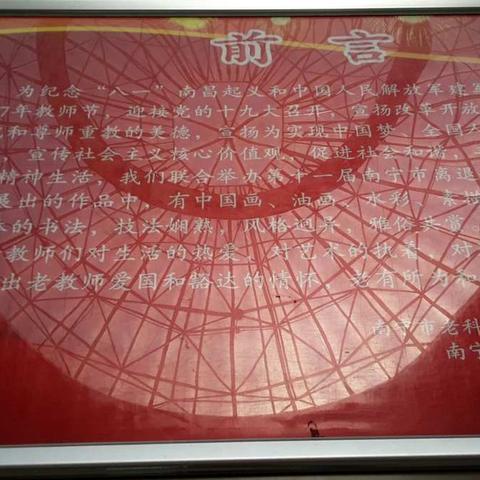 前言
为纪念“八一”南昌起义和中国人民解放军建军
7年教师节，迎接党的十九大召开，宣扬改革开放
和尊师重教的美德，宣扬为实现中国梦，全国
，宣传社会主义核心价值观，促进社会和谐，
精神生活，我们联合举办第十一届南宁市离退
展出的作品中，有中国画、油画、水彩、素描
的书法，技法娴熟，风格迥异，雅俗共赏。
教师们对生活的热爱，对艺术的执着，对
出老教师爱国和豁达的情怀，老有所为和
南宁市老科
南宁